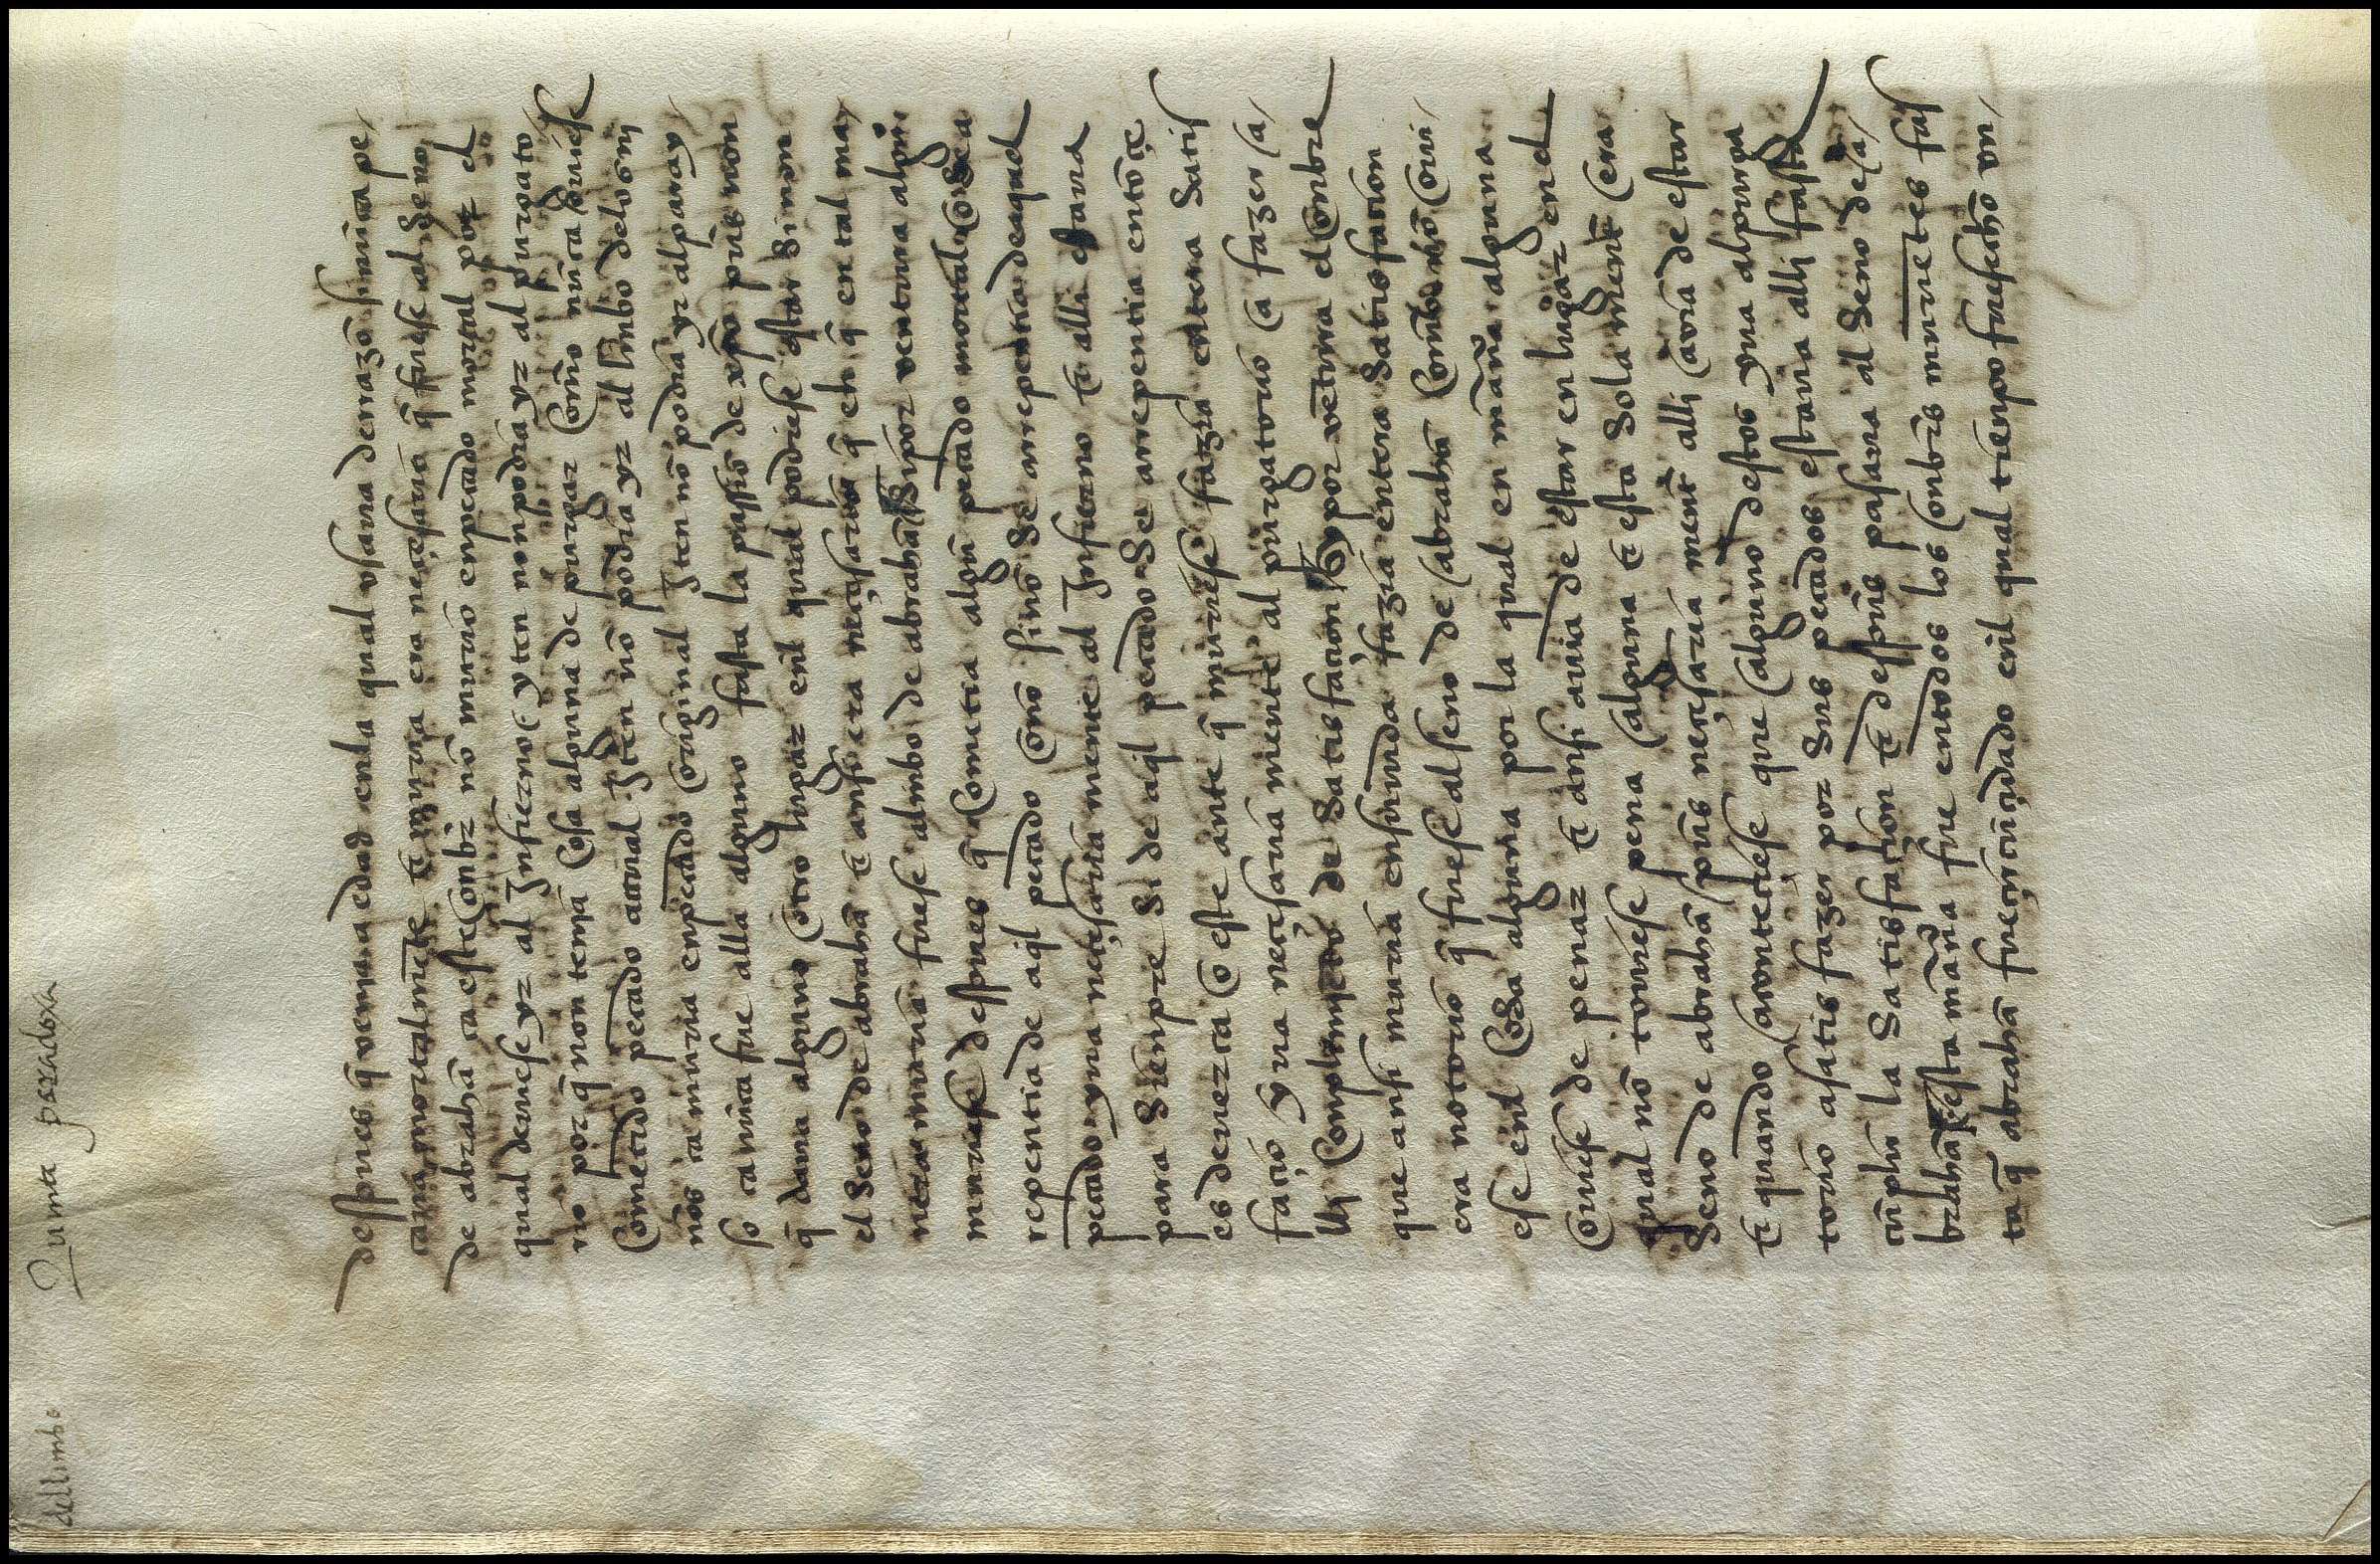 dellimbo
Quinta paradoxa
despues q̃ venjna edad enla qual vsaua de rrazõ si nũca pe
caua mortalmẽte τ̃ muria era neçesario q̃ fuese al seno
de abrahã ca este onbr̃ nõ murio en pecado mortal por el
qual deuiese yr al Infierno / yten non podia yr al purgato
rio por q̃ non tenja cosa alguna de purgar com̃o nũca ouiese
cometido pecado actual Iten nõ podia yr al linbo delos nj
nos ca muria en pecado original Iten nõ podia yr al paray
so ca nũca fue alla alguno fasta la passiõ de xp̃o pues non
q̃ daua alguno otro lugar enl qual podiese estar sinon
el seno de abrahã τ̃ ansi era neçesario q̃ el q̃ en tal ma
nera murio fuese al linbo de abrahã Si por ventura algũ
muriese despues q̃ cometia algũ pecado mortal o se a
repentia de aq̃l pecado com̃o si nõ se arrepentia de aquel
pecado yua neçesaria mente al Infierno τ̃ alli estaua
para sienpre Si de aq̃l pecado se arrepentia entõçe
es de nezca o este ante q̃ muriese fazia entera satis
façiõ yua neçesaria mente al purgatorio a fazer a
lli conplimjento de satisfaçion Y por vẽtura el onbre
que ansi muria en su vida fazia entera satisfaçion
era notorio q̃ fuese al seno de abrahã com̃o nõ oui
ese enl cosa alguna por la qual en mãn̄a alguna
ouiese de penar τ̃ ansi auia de estar en lugar enel
qual nõ touiese pena alguna τ̃ esta sola mente era
seno de abrahã pues neçesaria ment̃ alli auia de estar
τ̃ quando aconteçiese que alguno destos yua al purga
torio a satisfazer por sus pecados estaua alli fasta
cũplir la satisfaçion τ̃ despues pasaua al seno de a
brahã esta mãn̄a fue en todos los onbr̃s murientes fas
ta q̃ abrahã fue çircũçidado enl qual tienpo fue fecho vn